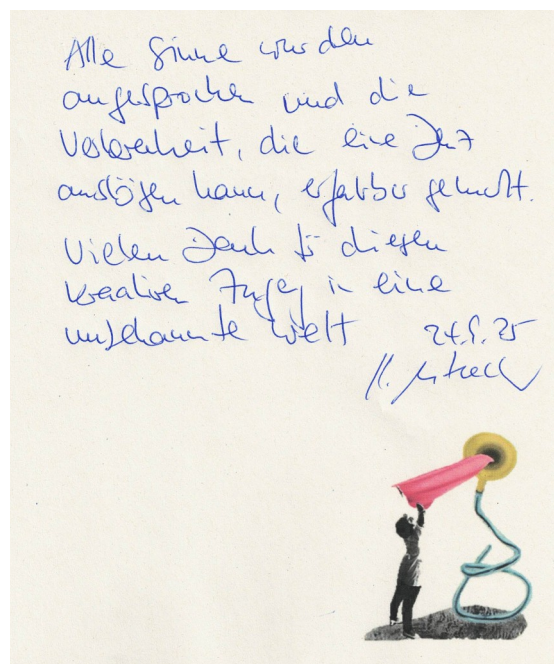 Alle Sinne wurden
angesprochen und die
Verlorenheit, die eine
auslösen kann, erfahrbar gemacht.
Vielen Dank für diesen
kreativen Zugang in eine
unbekannte Welt